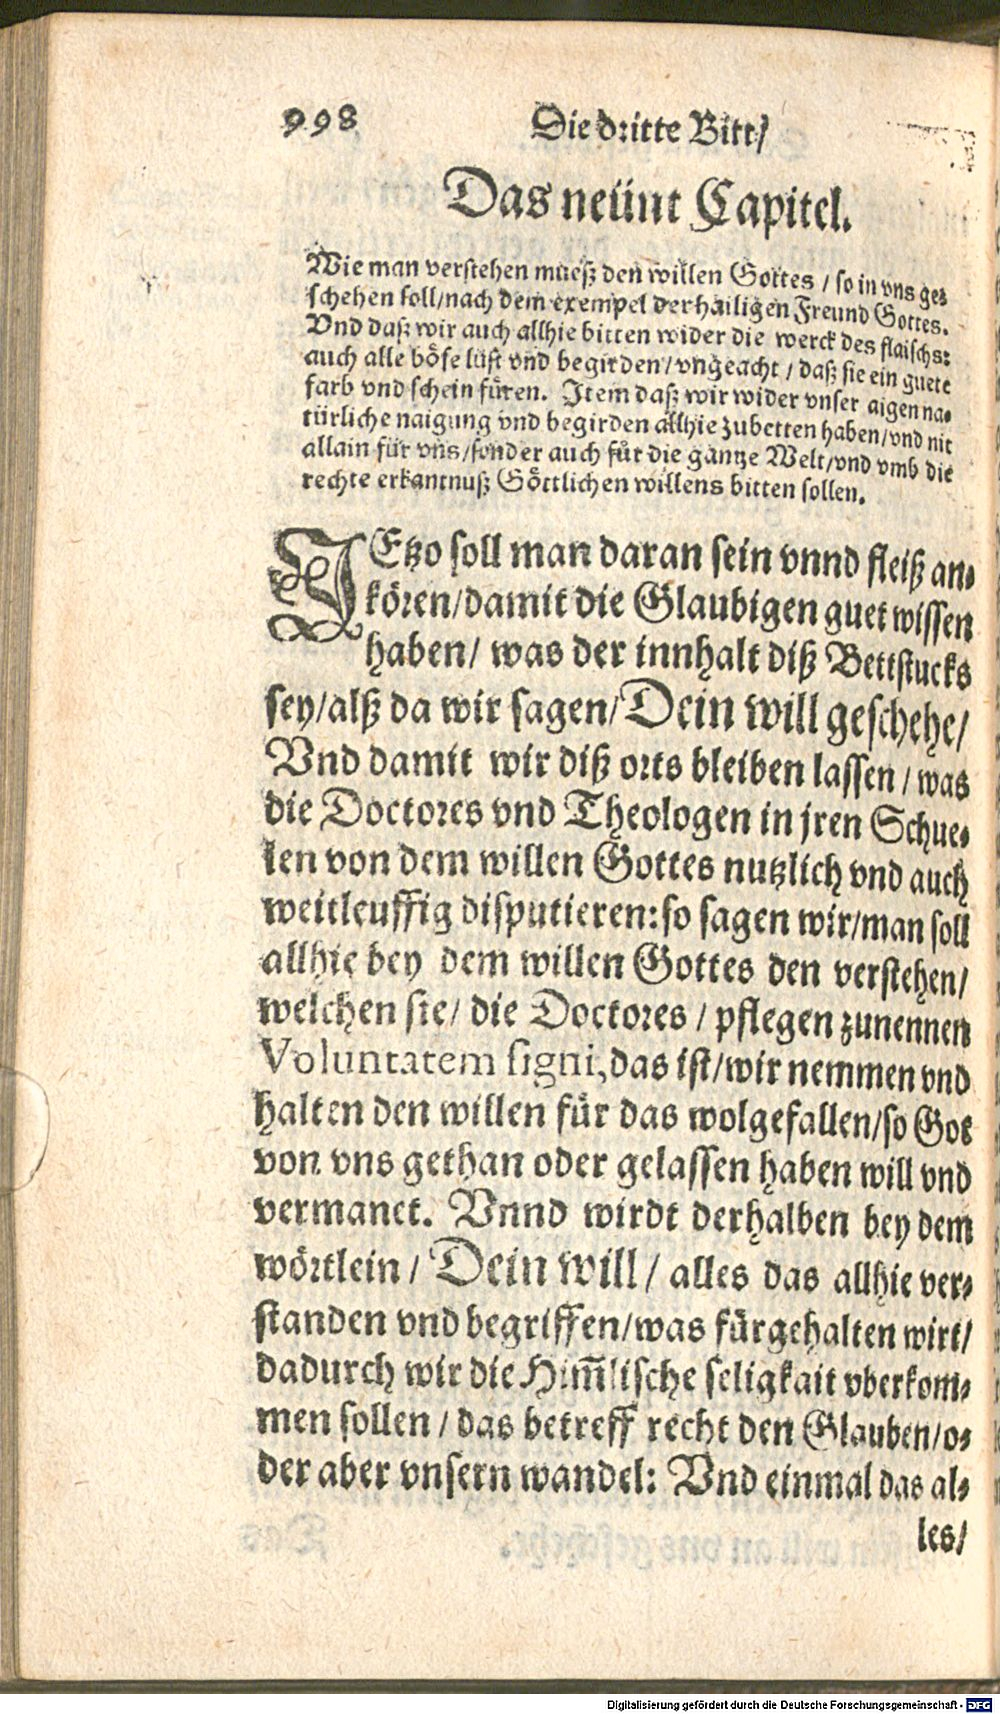 998 Die dritte Bitt/
Das neünt Capitel.
Wie man verstehen mueß den willen Gottes / so in vns ge⸗
schehen soll/nach dem exempel der hailigen Freund Gottes.
Vnd daß wir auch allhie bitten wider die werck des flaischs:
auch alle böse lüst vnd begirden/ vngeacht / daß sie ein guete
farb vnd schein füren. Item daß wir wider vnser aigen na⸗
türliche naigung vnd begirden allhie zubetten haben/vnd nit
allain für vns/sonder auch für die gantze Welt/vnd vmb die
rechte erkantnuß Göttlichen willens bitten sollen.
JEtzo soll man daran sein vnnd fleiß an⸗
kören/damit die Glaubigen guet wissen
haben/ was der innhalt diß Bettstucks
sey/alß da wir sagen/Dein will geschehe/
Vnd damit wir diß orts bleiben lassen / was
die Doctores vnd Theologen in jren Schue⸗
len von dem willen Gottes nutzlich vnd auch
weitleuffig disputieren: so sagen wir/man soll
allhie bey dem willen Gottes den verstehen/
welchen sie/ die Doctores / pflegen zunennen
Voluntatem signi, das ist/wir nemmen vnd
halten den willen für das wolgefallen/so Got
von vns gethan oder gelassen haben will vnd
vermanet. Vnnd wirdt derhalben bey dem
wörtlein / Dein will / alles das allhie ver⸗
standen vnd begriffen/was fürgehalten wirt/
dadurch wir die Him̃lische seligkait vberkom⸗
men sollen / das betreff recht den Glauben/o⸗
der aber vnsern wandel: Vnd einmal das al⸗
les/
Digitalisierung gefördert durch die Deutsche Forschungsgemeinschaft - DFG